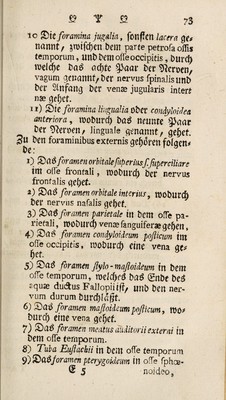 73
10 Die foramina jugalia, sonsten lacera ge-
nannt, zwischen dem parte petrosa ossis
temporum, und dem osse occipitis, durch
welche das achte Paar der Nerven,
vagum genannt, der nervus spinalis und
der Anfang der venæ jugularis intert
næ gehet.
11) Die foramina lingualia oder condyloidea
anteriora, wodurch das neunte Paar
der Nerven, linguale genannt, gehet.
Zu den foraminibus externis gehören folgen-
de:
1) Das foramen orbitale superius s. superciliare
im osse frontali, wodurch der nervus
frontalis gehet.
2) Das foramen orbitale interius, wodurch
der nervus nasalis gehet.
3) Das foramen parietale in dem osse pa-
rietali, wodurch venæ sanguiferæ gehen,
4) Das foramen condyloideum posticum im
osse occipitis, wodurch eine vena ge-
het.
5) Das foramen stylo-mastoideum in dem
osse temporum, welches das Ende des
aquæ ductus Fallopii ist, und den ner-
vum durum durchläßt.
6) Das foramen mastoideum posticum, wo-
durch eine vena gehet.
7) Das foramen meatus auditorii externi in
dem osse temporum.
8) Tuba Eustachii in dem osse temporum
9) Das foramen pterygoideum in osse sphœ-
E 5 noideo,